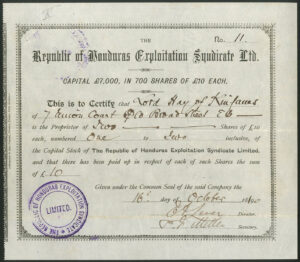 THE No. 11.
Republic of Honduras Exploitation Syndicate Ltd.
CAPITAL £7,000, IN 700 SHARES OF £10 EACH.
This is to Certify that Lord Hay of Kinfauns
of 7 Union Court Old Broad Street E.C.
is the Proprietor of Two Shares of £10
each, numbered One to Two inclusive, of
the Capital Stock of The Republic of Honduras Exploitation Syndicate Limited,
and that there has been paid up in respect of each of such Shares the sum
of £10
Given under the Common Seal of the said Company the
16th day of October
Director.
Secretary.
THE REPUBLIC OF HONDURAS EXPLOITATION SYNDICATE
LIMITED.